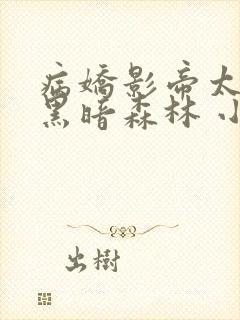 病嬌影帝太
黑暗森林 小
出樹